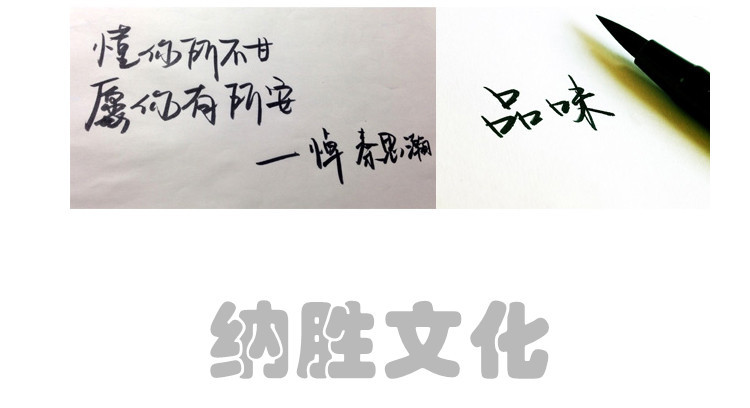 懂你所不甘
愿你有所安
一悼秦思瀚
品味
纳胜文化